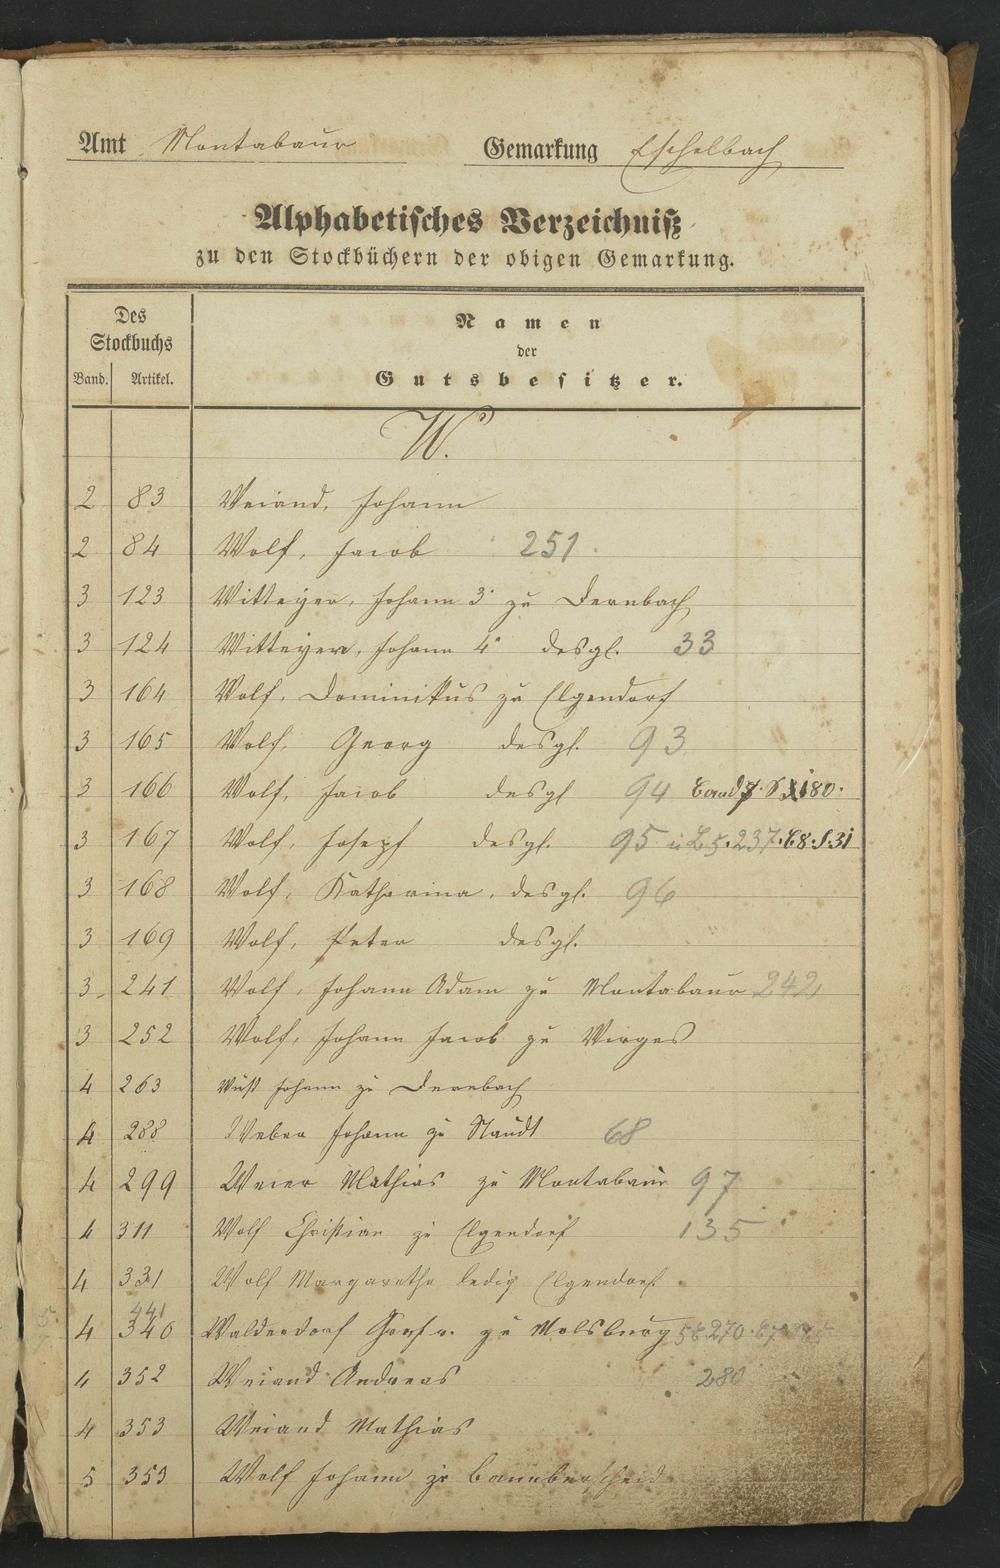 Amt Montabaur Gemarkung Eschelbach
Alphabetisches Verzeichniß
zu den Stockbüchern der obigen Gemarkung.
Des Stockbuchs
Band. Artikel.
Namen
der
Gutsbesitzer.
W.
2 83 Weiand, Johann
2 84 Wolf, Jacob 251.
3 123 Witteyer, Johann 3r zu Dernbach
3 124 Witteyer, Johann 4r desgl. 33
3 164 Wolf, Dominikus zu Elgendorf
3 165 Wolf, Georg desgl. 93
3 166 Wolf, Jacob desgl 94 Band 7. S 180.
3 167 Wolf, Josepf desgl. 95 u B 5. 237. B 8. S. 31
3 168 Wolf, Katharina, desgl. 96
3 169 Wolf, Peter desgl.
3 241 Wolf, Johann Adam zu Montabaur 242
3 252 Wolf, Johann Jacob zu Wirges
4 263 Wüst Johann zu Dernbach
4 288 Weber Johann zu Staudt 68
4 299 Weier Mathias zu Montabaur 97
4 311 Wolf Christian zu Elgendorf 135
4 331 Wolf Margaretha ledig Elgendorf
441
4 340 Walderdorf Graf v. zu Molsburg 270
4 352 Weiand Andreas 280
4 353 Weiand Mathias
5 353 Wolf Johann zu Bannberscheid